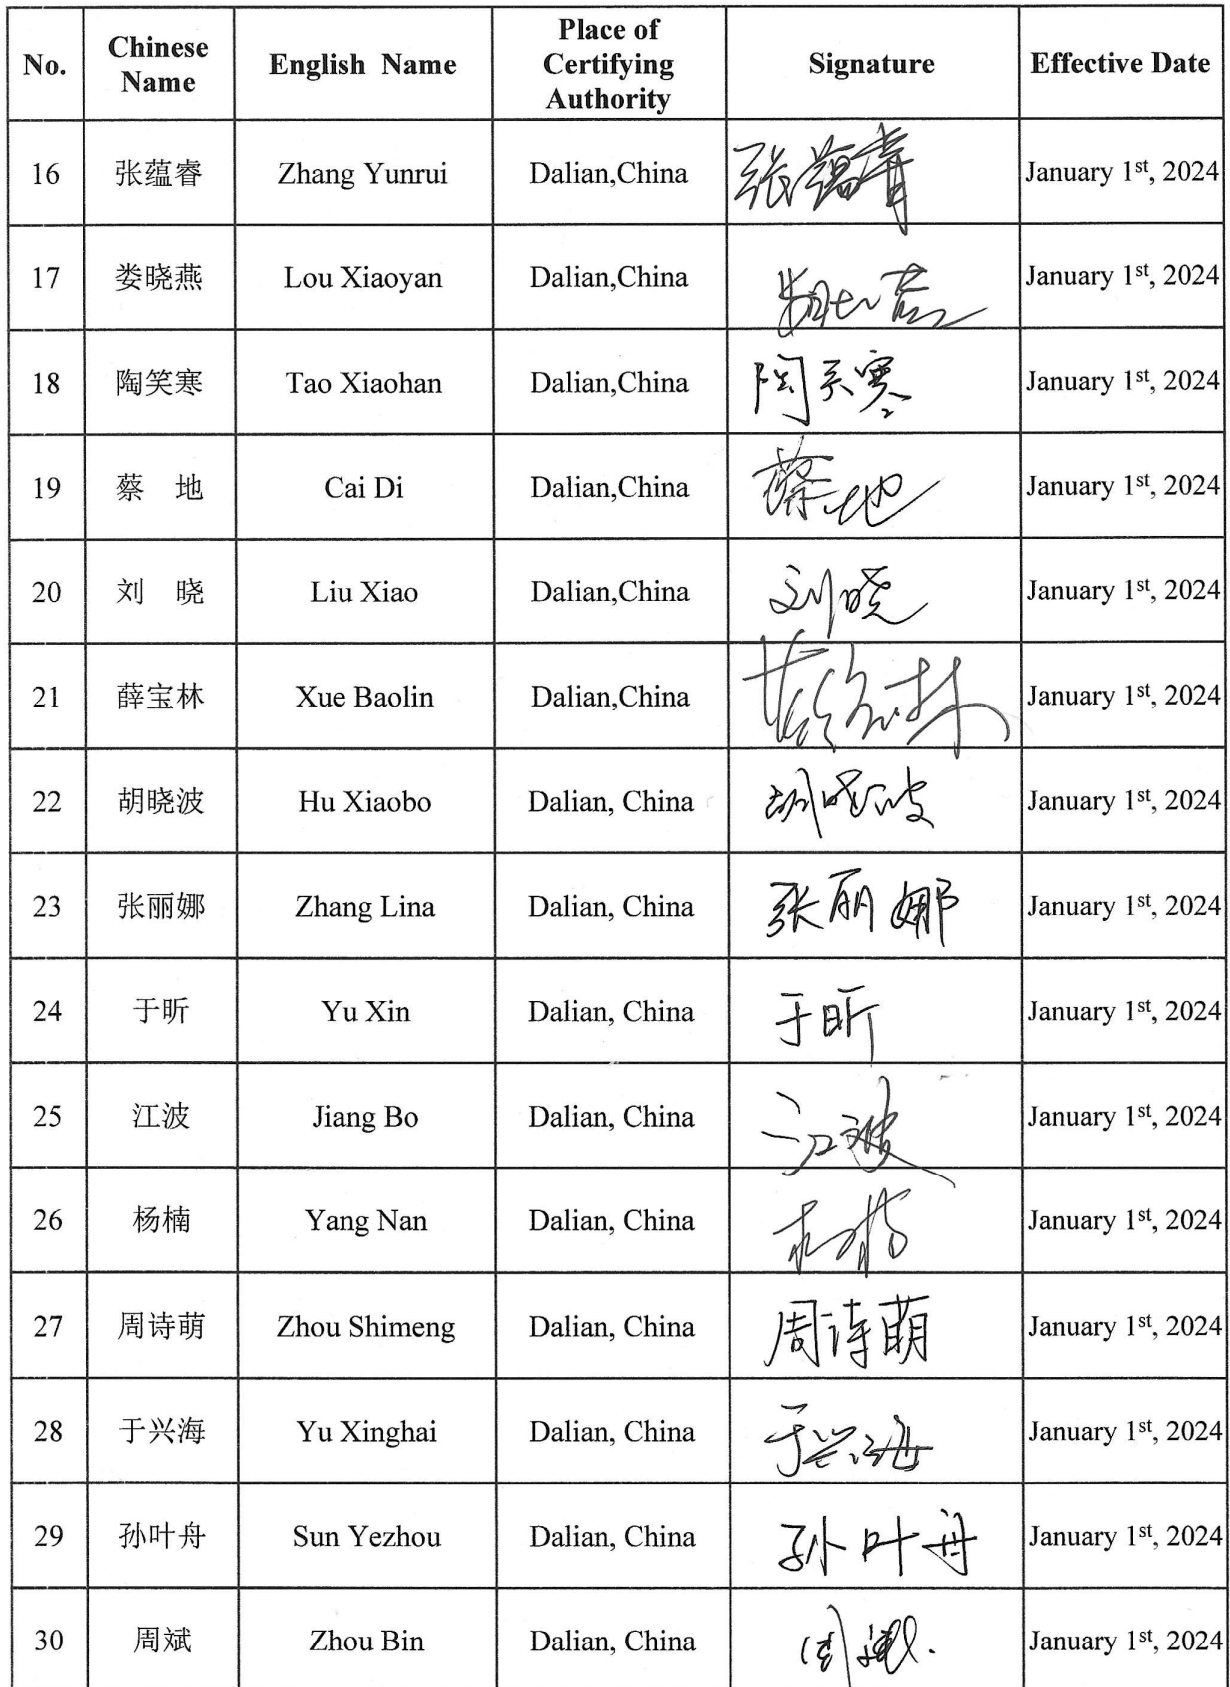 No. Chinese Name English Name Place of Certifying Authority Signature Effective Date
16 张蕴睿 Zhang Yunrui Dalian,China January 1st, 2024
17 娄晓燕 Lou Xiaoyan Dalian,China January 1st, 2024
18 陶笑寒 Tao Xiaohan Dalian,China January 1st, 2024
19 蔡 地 Cai Di Dalian,China 蔡地 January 1st, 2024
20 刘 晓 Liu Xiao Dalian,China 刘晓 January 1st, 2024
21 薛宝林 Xue Baolin Dalian,China January 1st, 2024
22 胡晓波 Hu Xiaobo Dalian, China 胡晓波 January 1st, 2024
23 张丽娜 Zhang Lina Dalian, China 张丽娜 January 1st, 2024
24 于昕 Yu Xin Dalian, China 于昕 January 1st, 2024
25 江波 Jiang Bo Dalian, China 江波 January 1st, 2024
26 杨楠 Yang Nan Dalian, China January 1st, 2024
27 周诗萌 Zhou Shimeng Dalian, China 周诗萌 January 1st, 2024
28 于兴海 Yu Xinghai Dalian, China 于兴海 January 1st, 2024
29 孙叶舟 Sun Yezhou Dalian, China 孙叶舟 January 1st, 2024
30 周斌 Zhou Bin Dalian, China January 1st, 2024